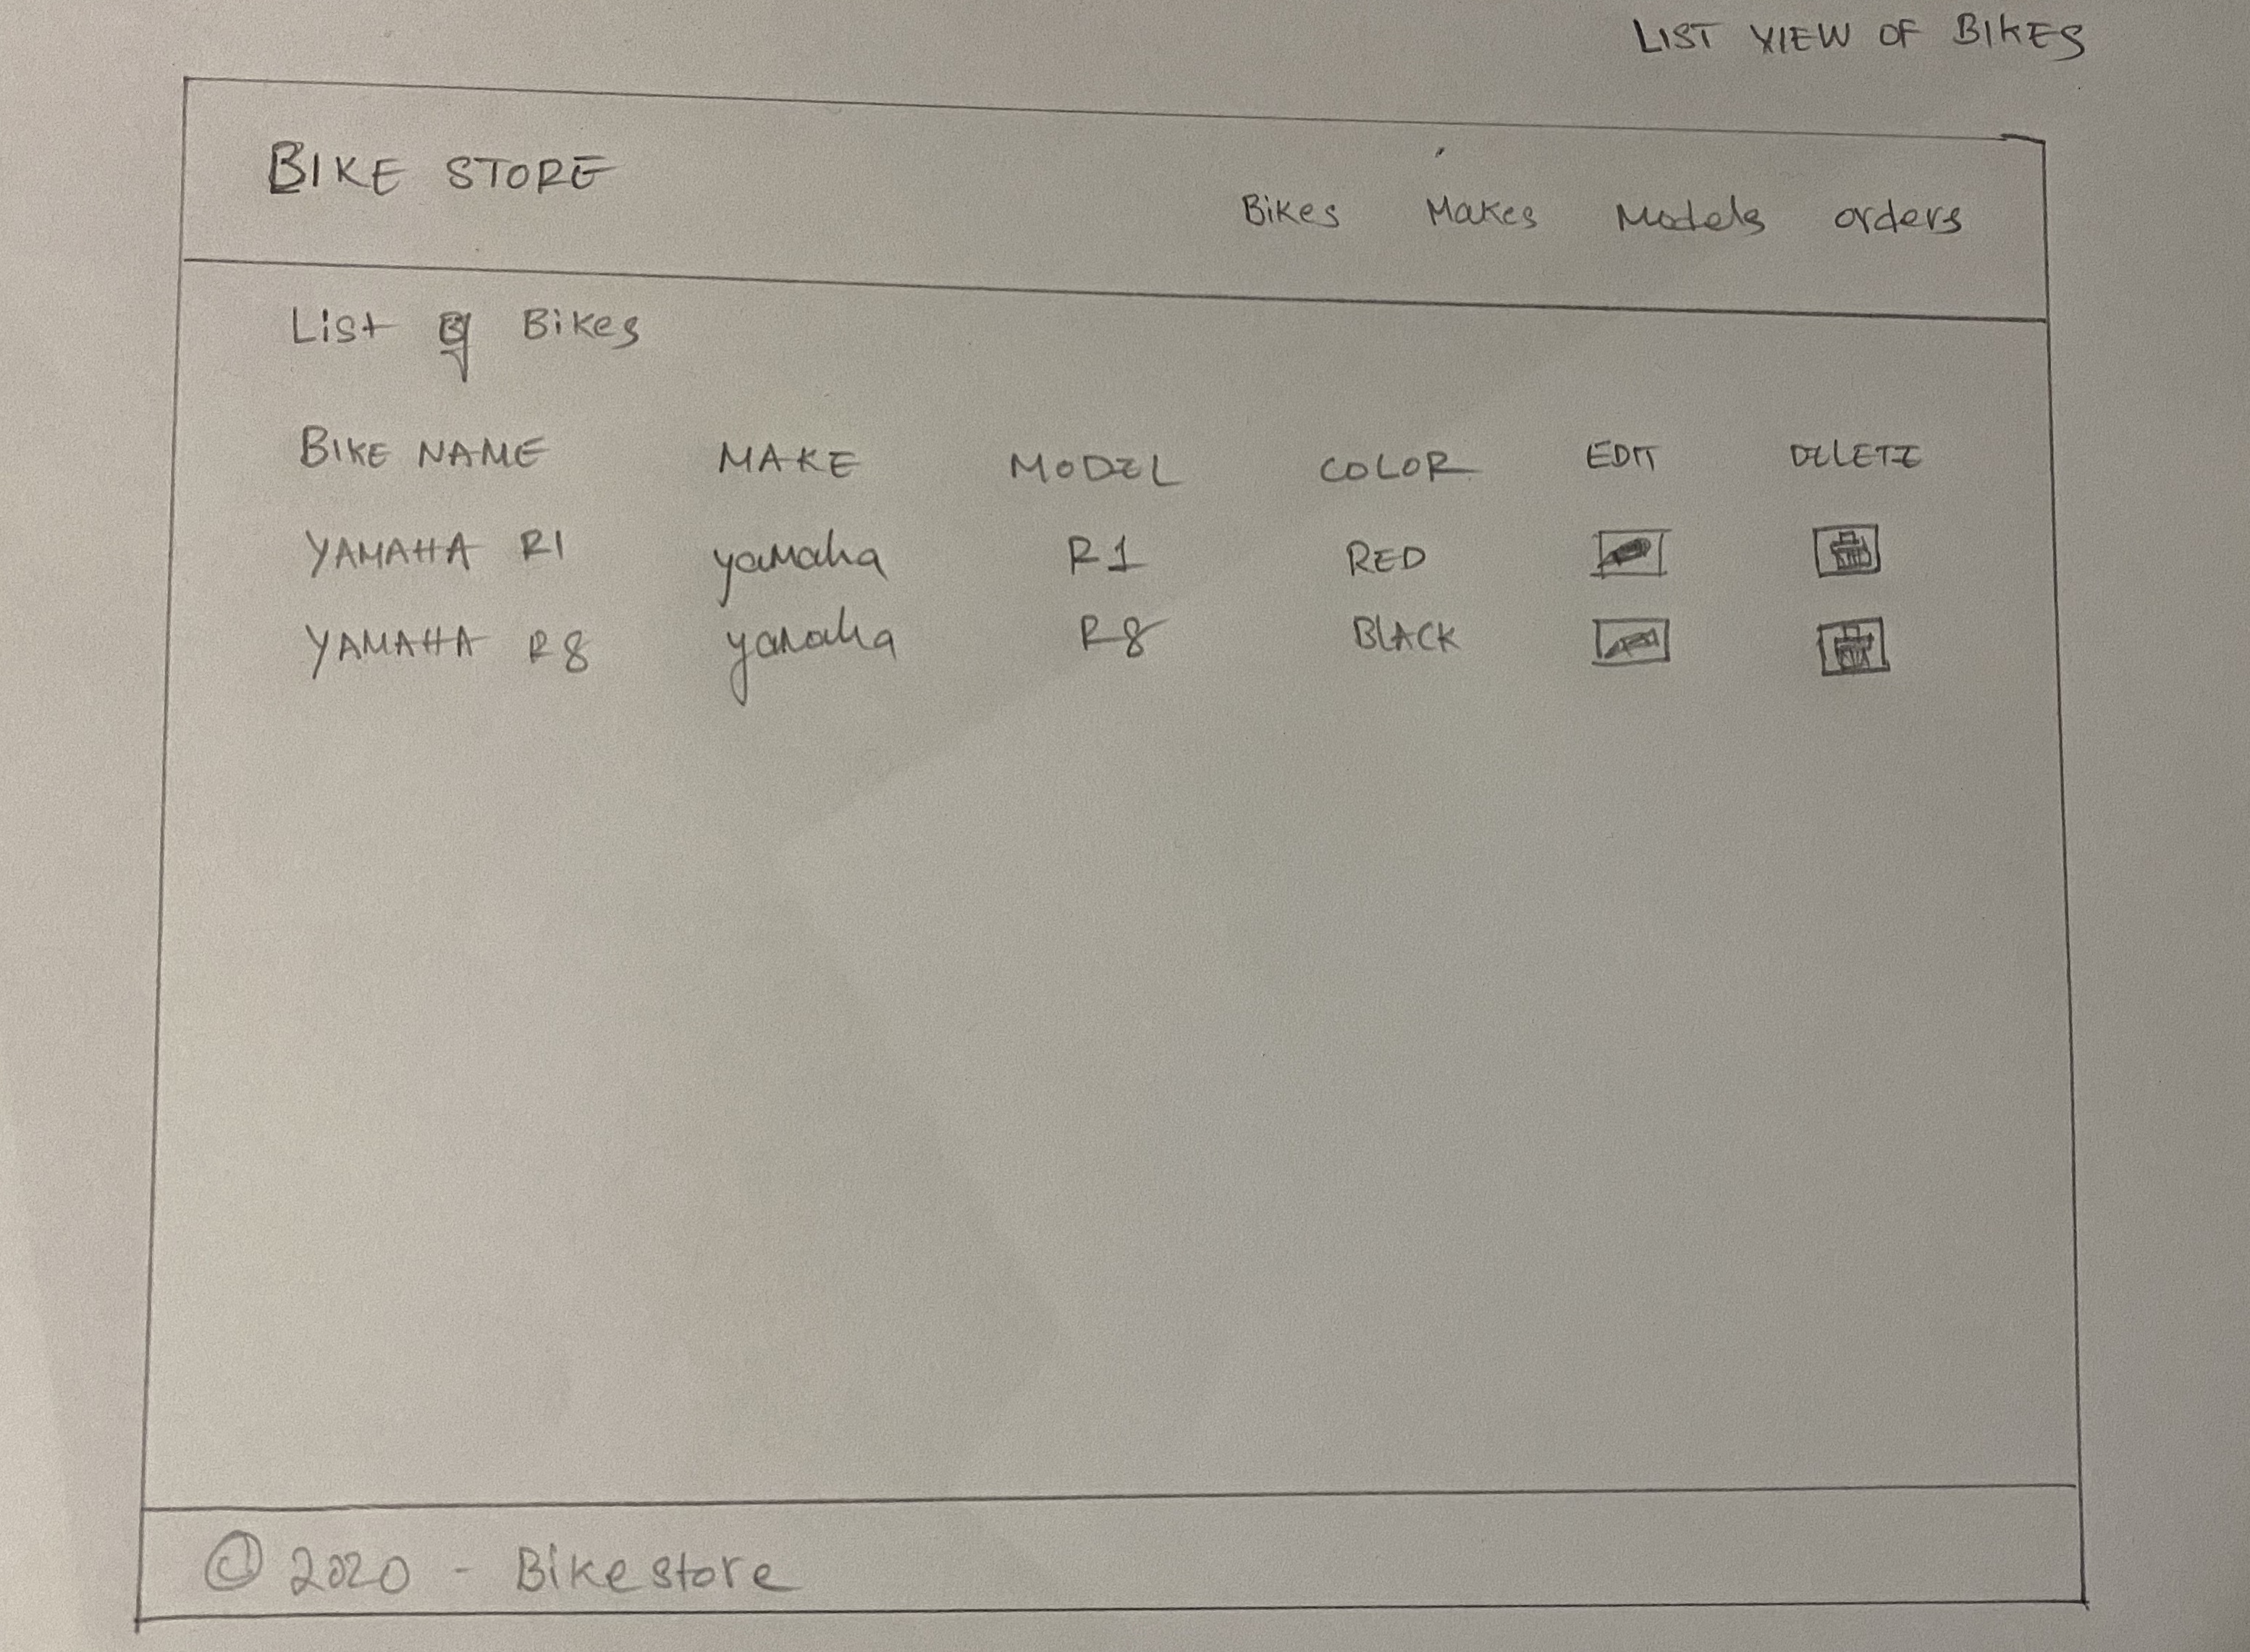 LIST VIEW OF BIKES
BIKE STORE
Bikes Makes Models orders
List of Bikes
BIKE NAME MAKE MODEL COLOR EDIT DELETE
YAMAHA R1 yamaha R1 RED
YAMAHA R8 yamaha R8 BLACK
© 2020 - Bikestore